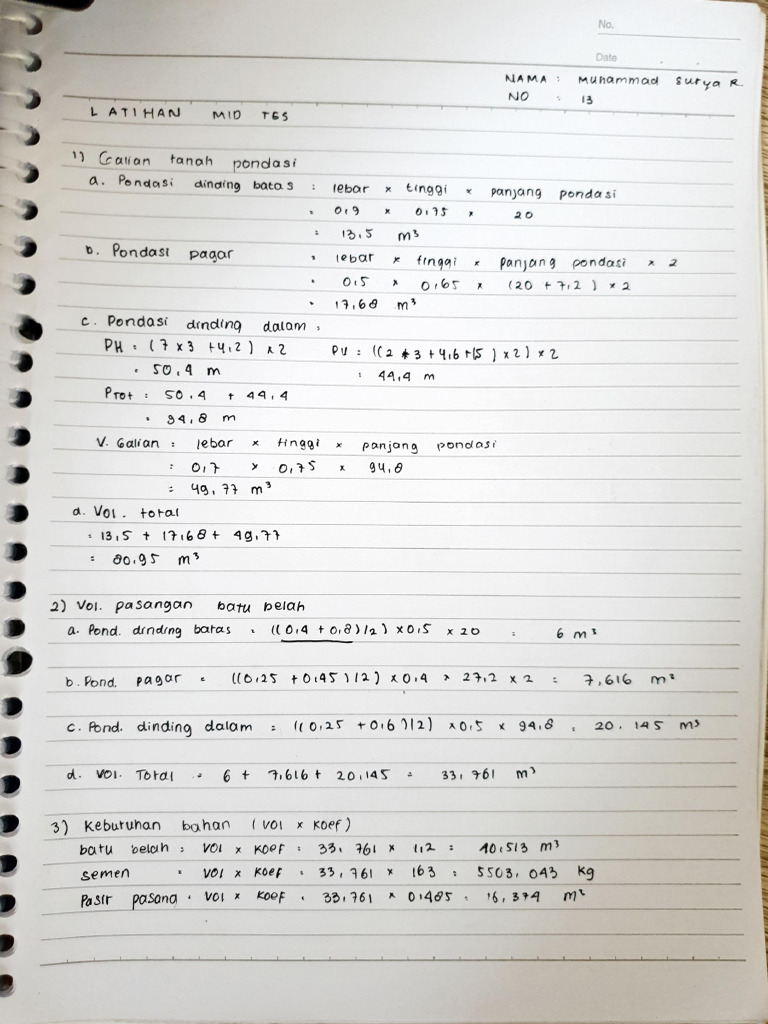 No.
Date
NAMA : Muhammad Surya R.
NO : 13
LATIHAN MID TES
1) Galian tanah pondasi
a. Pondasi dinding batas : lebar × tinggi × panjang pondasi
= 0,9 × 0,75 × 20
= 13,5 m³
b. Pondasi pagar = lebar × tinggi × panjang pondasi × 2
= 0,5 × 0,65 × (20 + 7,2) × 2
= 17,68 m³
c. Pondasi dinding dalam :
PH = (7 × 3 + 4,2) × 2 PV = ((2 * 3 + 4,6 + 15) × 2) × 2
= 50,4 m = 44,4 m
Ptot = 50.4 + 44,4
= 94,8 m
V. Galian = lebar × tinggi × panjang pondasi
= 0,7 × 0,75 × 94,8
= 49,77 m³
d. Vol. total
= 13,5 + 17,68 + 49,77
= 80,95 m³
2) Vol. pasangan batu belah
a. Pond. dinding batas = ((0,4 + 0,8)/2) × 0,5 × 20 = 6 m³
b. Pond. pagar = ((0,25 + 0,45)/2) × 0,4 × 27,2 × 2 = 7,616 m³
c. Pond. dinding dalam = ((0,25 + 0,6)/2) × 0,5 × 94,8 = 20.145 m³
d. Vol. Total = 6 + 7,616 + 20,145 = 33,761 m³
3) Kebutuhan bahan (vol × koef)
batu belah = vol × koef = 33,761 × 1,2 = 40,513 m³
semen = vol × koef = 33,761 × 163 = 5503,043 kg
Pasir pasang = vol × koef = 33,761 × 0,485 = 16,374 m³